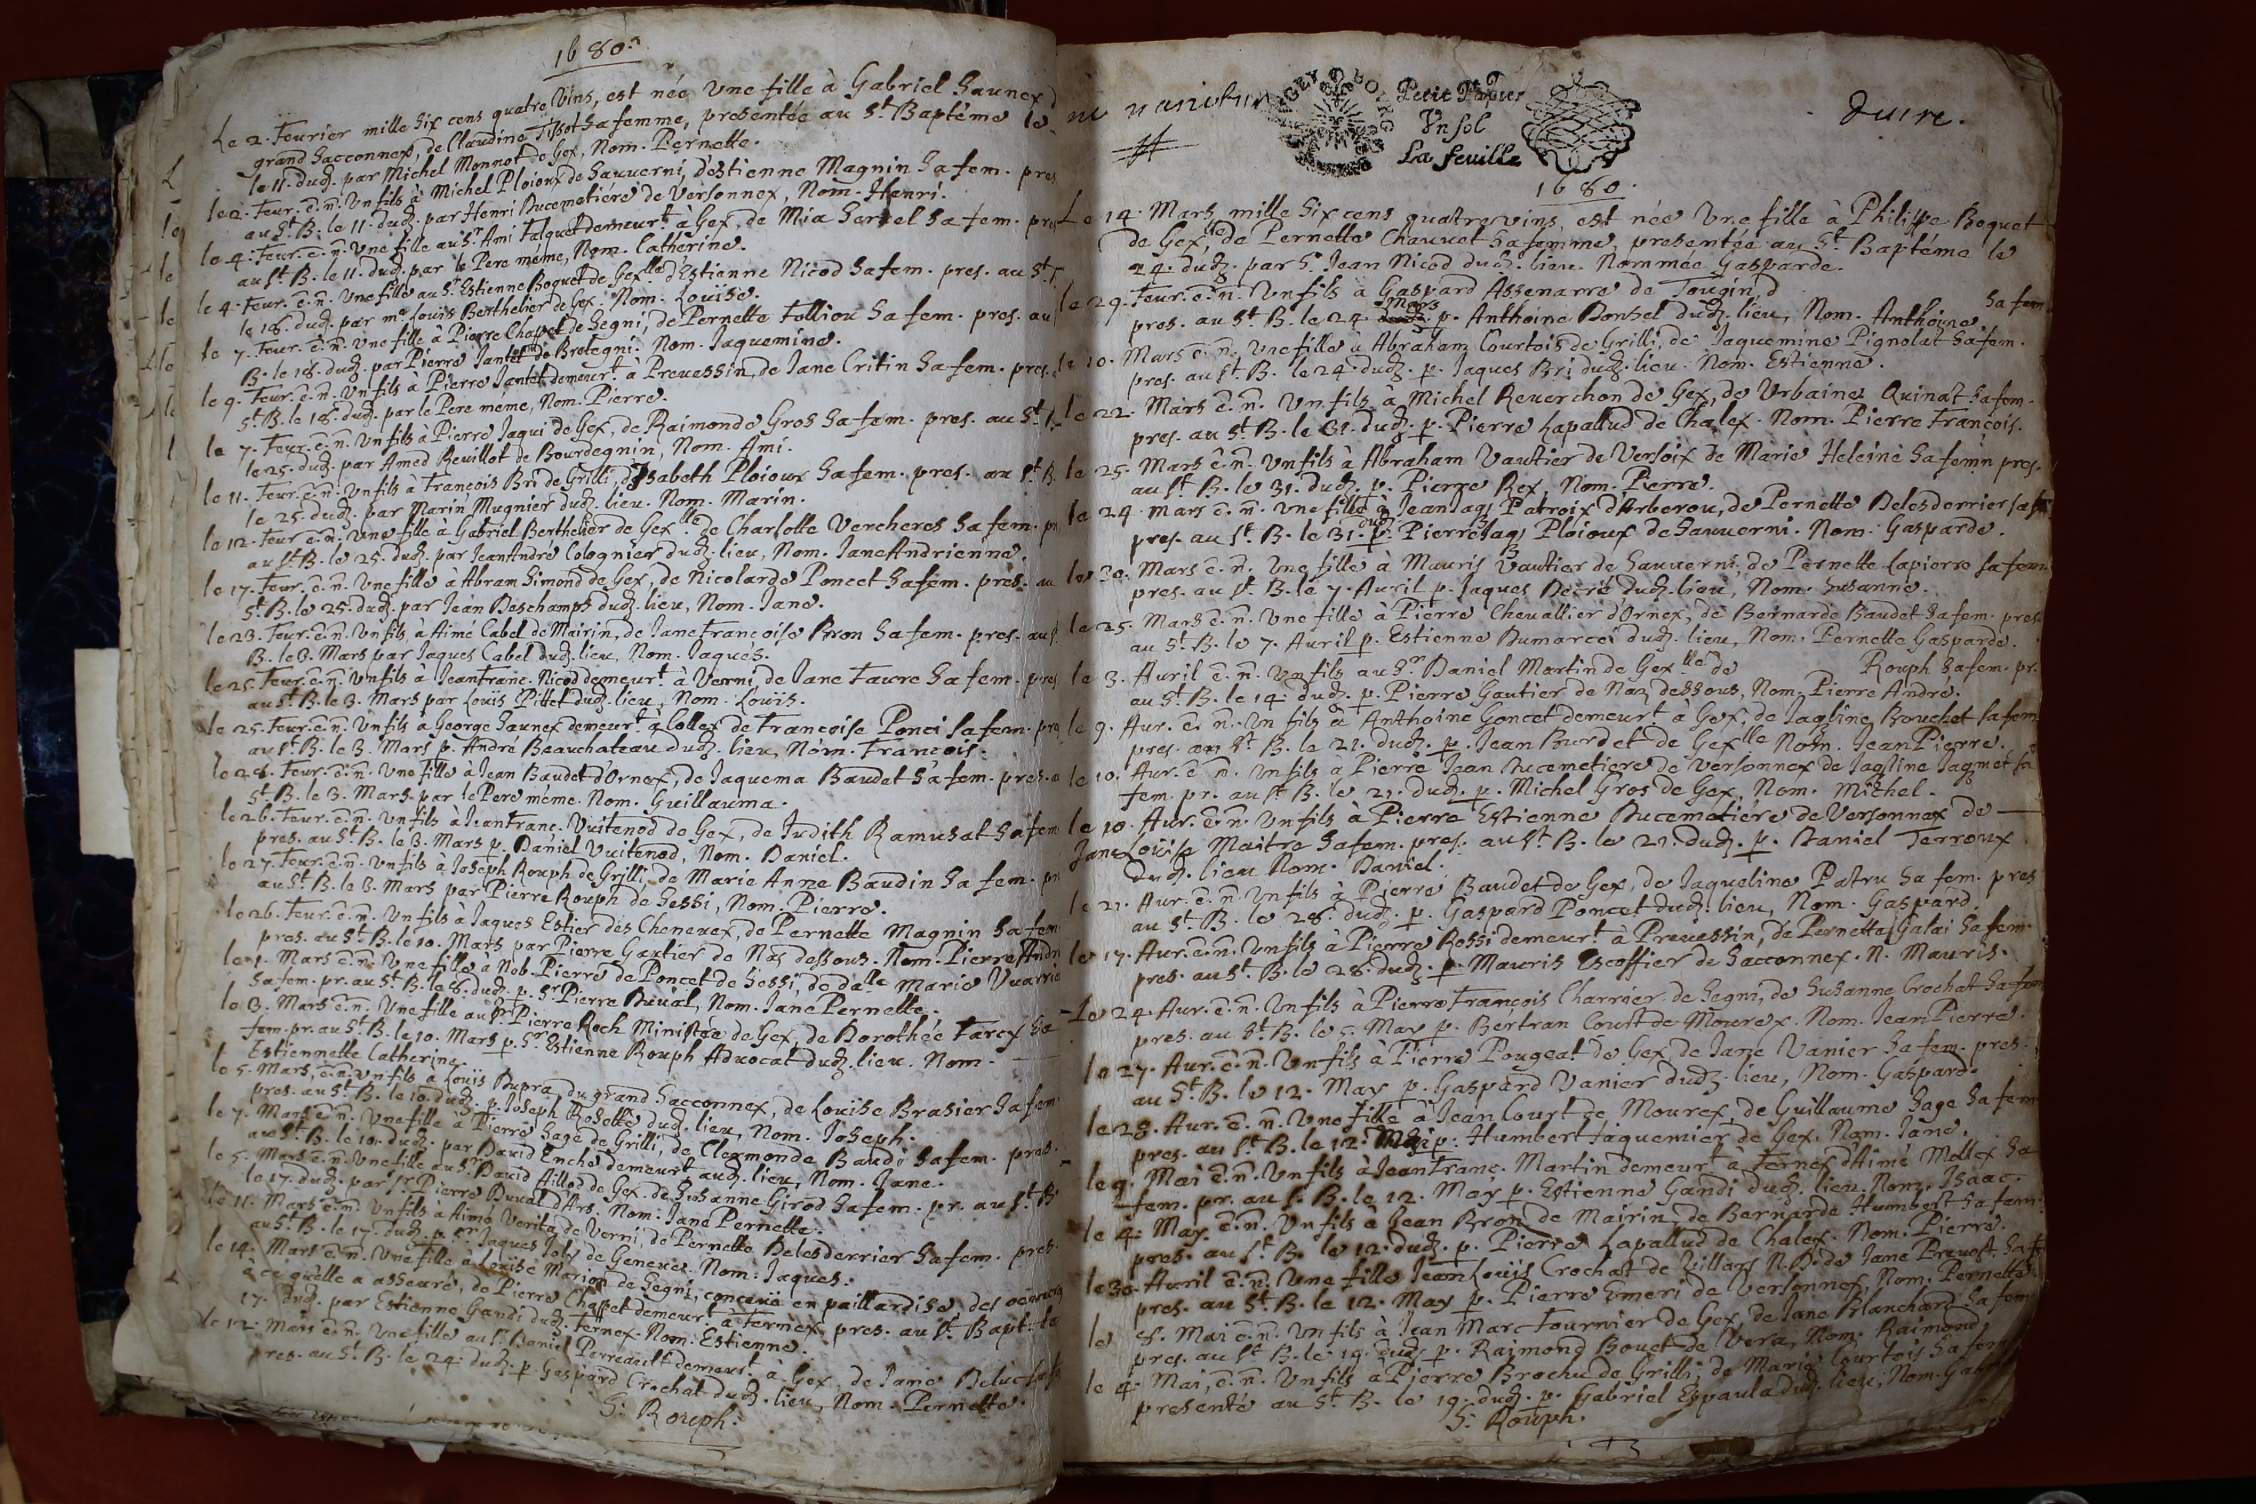 1680.
Le 2. Feurier mille Six cens quatre Vins, est née Une fille à Gabriel Saunex
grand Sacconnex, de Claudine Tissot Sa femme, presentée au St. Baptéme le
11. dudz. par Michel Monnot de Gex, Nom. Pernette.
le 2. Feur. ê. ñ. Vn fils à Michel Ploioux de Sauuerni, d'Estienne Magnin Sa fem. pres.
au St. B. le 11. dudz. par Henri Ducemetiére de Versonnex, Nom. Henri.
le 4. Feur. ê. ñ. Une fille au Sr. Ami Falquet demeurt. à Gex, de Mia Sertel Sa fem. pres
au St. B. le 11. dudz. par le Pere méme, Nom. Catherine.
le 4. Feur. ê. ñ. Une fille au Sr. Estienne Boquet de Gex lle d'Estienne Nicod Sa fem. pres. au St.
le 18. dudz. par me. Louïs Berthelier de Gex. Nom. Louïse.
le 7. Feur. ê. ñ. Une fille à Pierre Chapet de Segni, de Pernette Folliou Sa fem. pres. au
B. le 18. dudz. par Pierre Jantet de Bretegni. Nom. Jaquemine.
le 9. Feur. ê. ñ. Un fils à Pierre Jantet demeurt. à Preuessin, de Jane Critin Sa fem. pres.
St. B. le 18. dudz. par le Pere méme, Nom. Pierre.
le 7. Feur. ê. ñ. Un fils à Pierre Jaqui de Gex, de Raimonde Gros Sa fem. pres. au St.
le 25. dudz. par Amed Reuillot de Bourdegnin, Nom. Ami.
le 11. Feur. ê. ñ. Un fils à François Bri de Grilli, d'Isabeth Ploioux Sa fem. pres. au St. B.
le 25. dudz. par Marin Mugnier dudz. lieu. Nom. Marin.
le 12. Feur ê. ñ. Une fille à Gabriel Berthelier de Gex lle de Charlotte Vercheres Sa fem.
au St. B. le 25. dudz. par Jean André Colognier dudz. lieu, Nom. Jane Andrienne.
le 17. Feur. ê. ñ. Une fille à Abram Simond de Gex, de Nicolarde Poncet Sa fem. pres. au
St. B. le 25. dudz. par Jean Deschamps dudz. lieu, Nom. Jane.
le 23. Feur. ê. ñ. Un fils à Aimé Cabel de Mairin, de Jane Françoise Bron Sa fem. pres. au
B. le 3. Mars par Jaques Cabel dudz. lieu, Nom. Jaques.
le 25. Feur. ê. ñ. Un fils à Jean Franç. Nicod demeurt. à Verni, de Jane Faure Sa fem. pres
au St. B. le 3. Mars par Louïs Pittet dudz. lieu, Nom. Louïs.
le 25. Feur. ê. ñ. Un fils à George Saunex demeurt. à Collex de Françoise Ponci Sa fem.
au St. B. le 3. Mars p. André Beauchateau dudz. lieu, Nom. François.
le 28. Feur. ê. ñ. Une fille à Jean Baudet d'Ornex, de Jaquema Baudet Sa fem. pres.
St. B. le 3. Mars par le Pere méme. Nom. Guillauma.
le 26. Feur. ê. ñ. Un fils à Jean Franç. Vuitenod de Gex, de Judith Ramusat Sa fem
pres. au St. B. le 3. Mars p. Daniel Vuitenod, Nom. Daniel.
le 27. Feur. ê. ñ. Un fils à Joseph Rouph de Grilli, de Marie Anne Baudin Sa fem.
au St. B. le 3. Mars par Pierre Rouph de Sessi, Nom. Pierre.
le 26. Feur. ê. ñ. Un fils à Jaques Estier des Cheneuex, de Pernette Magnin Sa fem
pres. au St. B. le 10. Mars par Pierre Gautier de Nas dessous. Nom. Pierre André
le 1. Mars ê. ñ. Une fille à Nob. Pierre de Poncet de Sessi, de dalle Marie Vuarrie
Sa fem. pr. au St. B. le 8. dudz. p. Sr. Pierre Duual, Nom. Jane Pernette.
le 3. Mars ê. ñ. Une fille au Sr. Pierre Roch Ministre de Gex, de Dorothée Farcy Sa
fem. pr. au St. B. le 10. Mars p. Sr. Estienne Rouph Aduocat dudz. lieu. Nom.
Estiennette Catherine.
le 5. Mars, ê. ñ. Un fils à Louïs Dupra du grand Sacconnex, de Louïse Brasier Sa fem.
pres. au St. B. le 10. dudz. p. Joseph Rosette dudz. lieu, Nom. Joseph.
le 7. Mars ê. ñ. Une fille à Pierre Sage de Grilli, de Clermonde Baudi Sa fem. pres.
au St. B. le 10. dudz. par Dauid Enche demeurt. audz. lieu, Nom. Jane.
le 5. Mars ê. ñ. Une fille au Sr. Dauid Aillod de Gex. de Susanne Girod Sa fem. pr. au St. B.
le 17. dudz. par Sr. Pierre Duual d'Ars. Nom. Jane Pernette.
le 11. Mars ê. ñ. Un fils à Aimé Verita de Verni, de Pernette Delesderrier Sa fem. pres.
au St. B. le 17. dudz. p. Sr. Jaques Joly de Geneues. Nom. Jaques.
le 14. Mars ê. ñ. Une fille à Louïse Marion de Segni, conceuë en paillardise, des oeuures
à ce qu'elle a asseuré, de Pierre Chappet demeurt. à Fernex, pres. au St. Bapt. le
17. dudz. par Estienne Gandi dudz. Fernex. Nom. Estienne.
le 12. Mars ê. ñ. Une fille au Sr. Daniel Perreault demeurt. à Gex, de Jane Deluc Sa
pres. au St. B. le 24. dudz. p. Gaspard Crochat dudz. lieu, Nom. Pernette.
S. Rouph.
Petit Papier
Vn sol
La feuille
1680.
Le 14. Mars mille Six cens quatre vins, est née Une fille à Philippe Boquet
de Gex, lle de Pernette Chauuet Sa femme, presentée au St. Baptéme le
24. dudz. par S. Jean Nicod dudz. lieu. Nommée Gasparde.
le 29. Feur. ê. ñ. Un fils à Gaspard Assenarre de Tougin d Sa fem
pres. au St. B. le 24. Mars p. Anthoine Bonsel dudz. lieu, Nom. Anthoine.
le 10. Mars ê. ñ. Une fille à Abraham Courtois de Grilli, de Jaquemine Pignolat Sa fem.
pres. au St. B. le 24. dudz. p. Jaques Bri dudz. lieu. Nom. Estienne.
le 22. Mars ê. ñ. Un fils à Michel Reuerchon de Gex, de Urbaine Quinat Sa fem.
pres. au St. B. le 31. dudz. p. Pierre Lapallud de Chalex. Nom. Pierre François.
le 25. Mars ê. ñ. Un fils à Abraham Vautier de Versoix de Marie Heleine Sa fem pres.
au St. B. le 31. dudz. p. Pierre Rex, Nom. Pierre.
le 24. Mars ê. ñ. Une fille à Jean Jaqs Patroix d'Arberou, de Pernette Delesderrier Sa fem
pres. au St. B. le 31. dudz. p. Pierre Jaqs Ploioux de Sauuerni. Nom. Gasparde.
le 30. Mars ê. ñ. Une fille à Mauris Vautier de Sauuerni, de Pernette Lapierre Sa fem.
pres. au St. B. le 7. Auril p. Jaques Decré dudz. lieu, Nom. Susanne.
le 25. Mars ê. ñ. Une fille à Pierre Cheuallier d'Ornex, de Bernarde Baudet Sa fem. pres.
au St. B. le 7. Auril p. Estienne Dumarcei dudz. lieu, Nom. Pernette Gasparde.
le 3. Auril ê. ñ. Un fils au Sr. Daniel Martin de Gex lle de Rouph Sa fem. pr.
au St. B. le 14. dudz. p. Pierre Gautier de Naz dessous, Nom. Pierre André.
le 9. Aur. ê. ñ. Un fils à Anthoine Goncet demeurt. à Gex, de Jaqline Bouchet Sa fem
pres. au St. B. le 21. dudz. p. Jean Burdet de Gex lle Nom. Jean Pierre.
le 10. Aur. ê. ñ. Un fils à Pierre Jean Ducemetiere de Versonnex de Jaqline Jaqmet Sa
fem. pr. au St. B. le 21. dudz. p. Michel Gros de Gex, Nom. Michel.
le 10. Aur. ê. ñ. Un fils à Pierre Estienne Ducemetiére de Versonnex de
Jane Louïse Maitre Sa fem. pres. au St. B. le 21. dudz. p. Daniel Terroux
dudz. lieu Nom. Daniel.
le 21. Aur. ê. ñ. Un fils à Pierre Baudet de Gex, de Jaqueline Patru Sa fem. pres
au St. B. le 28. dudz. p. Gaspard Poncet dudz. lieu, Nom. Gaspard.
le 17. Aur. ê. ñ. Un fils à Pierre Rossi demeurt. à Preuessin, de Pernette Galai Sa fem.
pres. au St. B. le 28. dudz. p. Mauris Escoffier de Sacconnex. N. Mauris.
Le 24. Aur. ê. ñ. Un fils à Pierre François Charrier de Segni, de Susanne Crochat Sa fem
pres. au St. B. le 5. May p. Bertran Court de Mourex. Nom. Jean Pierre.
le 27. Aur. ê. ñ. Un fils à Pierre Pougeat de Gex, de Jane Vanier Sa fem. pres.
au St. B. le 12. May p. Gaspard Vanier dudz. lieu, Nom. Gaspard.
le 28. Aur. ê. ñ. Une fille à Jean Court de Mourex, de Guillaume Sage Sa fem
pres. au St. B. le 12. Mai p. Humbert Jaquemier de Gex. Nom. Jane.
le 9. Mai ê. ñ. Un fils à Jean Franç. Martin demeurt. à Fernex d'Aimé Mollex Sa
fem. pr. au S. B. le 12. May p. Estienne Gandi dudz. lieu. Nom. Isaac.
le 4. May ê. ñ. Un fils à Jean Bron de Mairin, de Bernarde Humbert Sa fem.
pres. au St. B. le 12. dudz. p. Pierre Lapallud de Chalex. Nom. Pierre.
le 30. Auril ê. ñ. Une fille Jean Louïs Crochat de Villars N. D. de Jane Preuost. Sa f
pres. au St. B. le 12. May p. Pierre Emeri de Versonnex, Nom. Pernette.
le 5. Mai ê. ñ. Un fils à Jean Marc Fournier de Gex, de Jane Blanchard Sa fem
pres. au St. B. le 19. dudz p. Raimond Bouet de Vera, Nom. Raimond.
le 4. Mai, ê. ñ. Un fils à Pierre Brochu de Grilli, de Marie Courtois Sa fem
presenté au St. B. le 19. dudz. p. Gabriel Espaula dudz. lieu, Nom. Gab
S. Rouph.